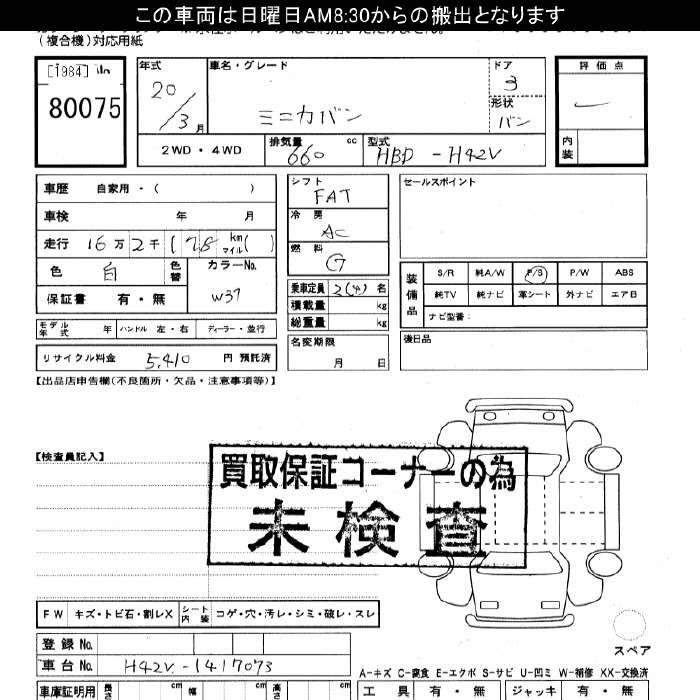 この車両は日曜日AM8:30からの搬出となります
(複合機)対応用紙
[1984]
80075
年式 20/3月
車名・グレード ミニカバン
ドア 3
形状 バン
評価点 —
内装
2WD ・ 4WD
排気量 660 cc
型式 HBD - H42V
車歴 自家用 ・( )
車検 年 月
走行 16万2千(178 km マイル( )
色 白 色替
カラーNo. W37
保証書 有 ・ 無
モデル年式 年 ハンドル 左・右 ディーラー・並行
リサイクル料金 5,410 円 預託済
シフト FAT
冷房 AC
燃料 G
乗車定員 2(4) 名
積載量 kg
総重量 kg
名変期限 月 日
セールスポイント
装備品
S/R 純A/W P/S P/W ABS
純TV 純ナビ 革シート 外ナビ エアB
ナビ型番:
後日品
【出品店申告欄(不良箇所・欠品・注意事項等)】
【検査員記入】
買取保証コーナーの為
未検査
FW キズ・トビ石・割レX シート内装 コゲ・穴・汚レ・シミ・破レ・スレ
スペア
登録 No.
車台 No. H42V-1417073
A-キズ C-腐食 E-エクボ S-サビ U-凹ミ W-補修 XX-交換済
車庫証明用 長さ cm 幅 cm 高さ cm
工具 有 ・ 無 ジャッキ 有 ・ 無